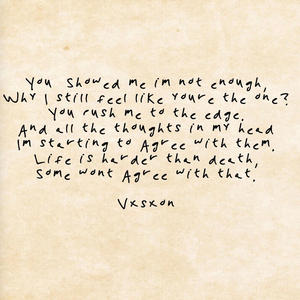 You showed me im not enough,
Why I still feel like youre the one?
You rush me to the edge.
And all the thoughts in my head
Im starting to Agree with them.
Life is harder than death,
Some wont Agree with that.
Vxsxon